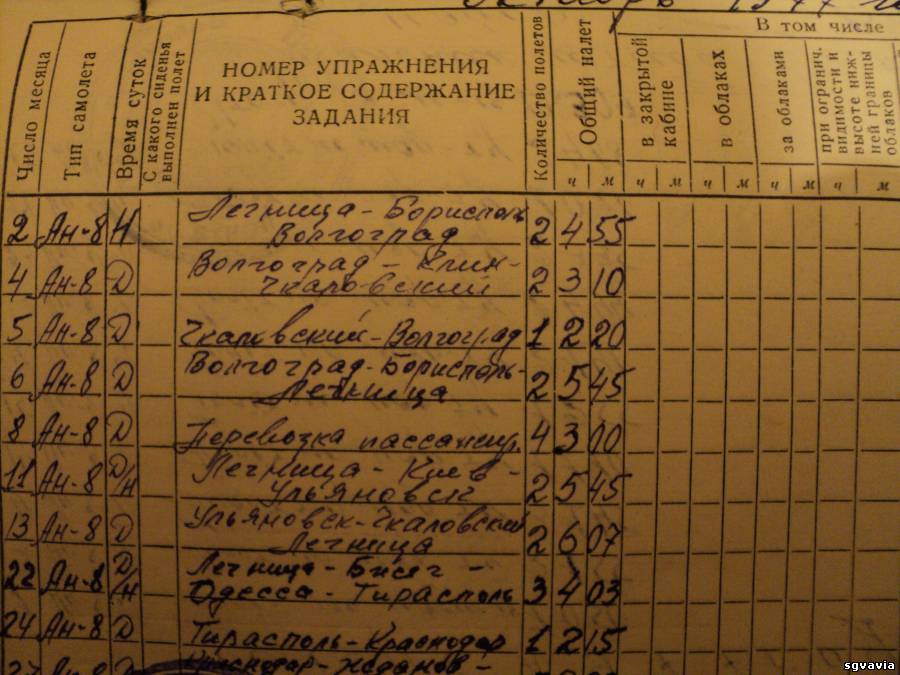 октябрь 1977 г
Число месяца
Тип самолета
Время суток
С какого сиденья выполнен полет
НОМЕР УПРАЖНЕНИЯ
И КРАТКОЕ СОДЕРЖАНИЕ
ЗАДАНИЯ
Количество полетов
Общий налет
В том числе
в закрытой кабине
в облаках
за облаками
при огранич. видимости и высоте нижней границы облаков
ч м ч м ч м ч м ч м
2 Ан-8 Н Легница - Борисполь 2 4 55
Волгоград
4 Ан-8 Д Волгоград - Клин - 2 3 10
Чкаловский
5 Ан-8 Д Чкаловский-Волгоград 1 2 20
6 Ан-8 Д Волгоград-Борисполь- 2 5 45
Легница
8 Ан-8 Д Перевозка пассажир. 4 3 10
11 Ан-8 Д/Н Легница - Киев - 2 5 45
Ульяновск
13 Ан-8 Д Ульяновск-Чкаловский 2 6 07
Легница
22 Ан-8 Д/Н Легница - Бжег - 3 4 03
Одесса - Тирасполь
24 Ан-8 Д Тирасполь-Краснодар 1 2 15
Краснодар-Жданов-
sgvavia